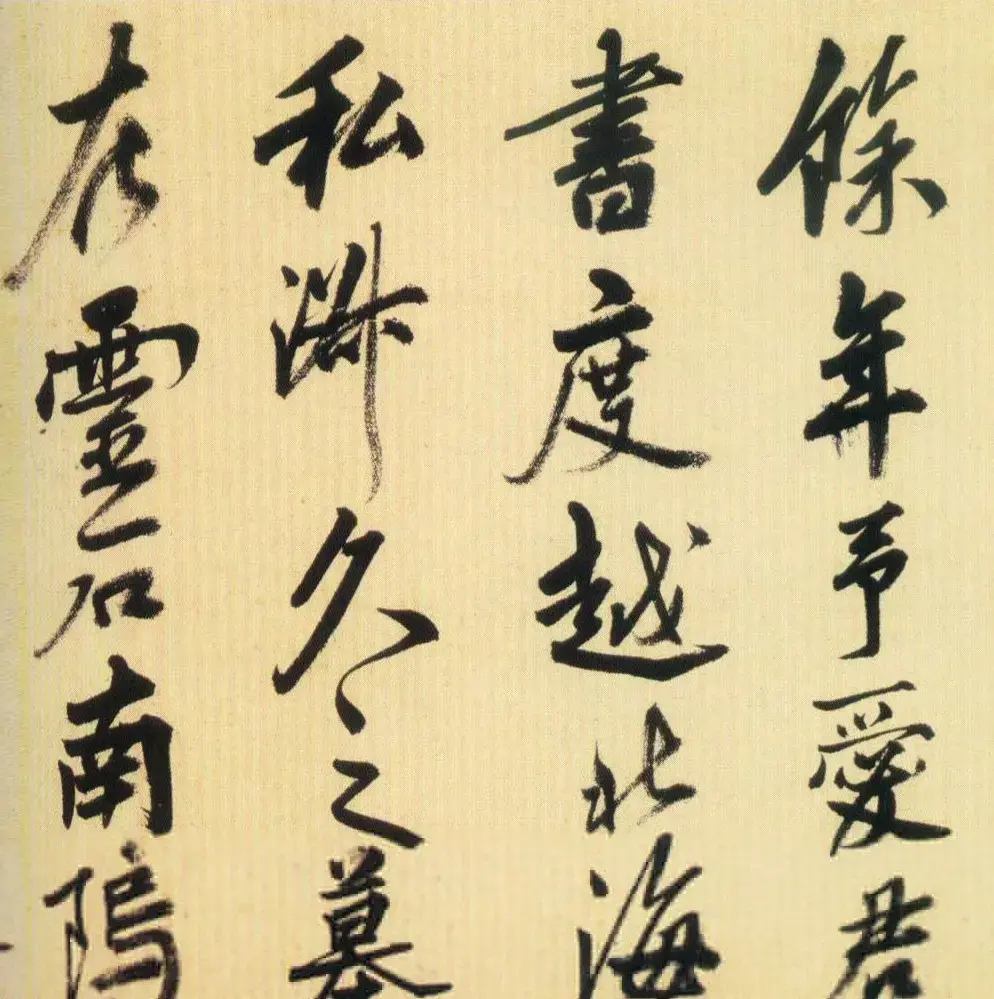 餘年予愛君
書度越北海
私淑久之墓
在靈石南隖